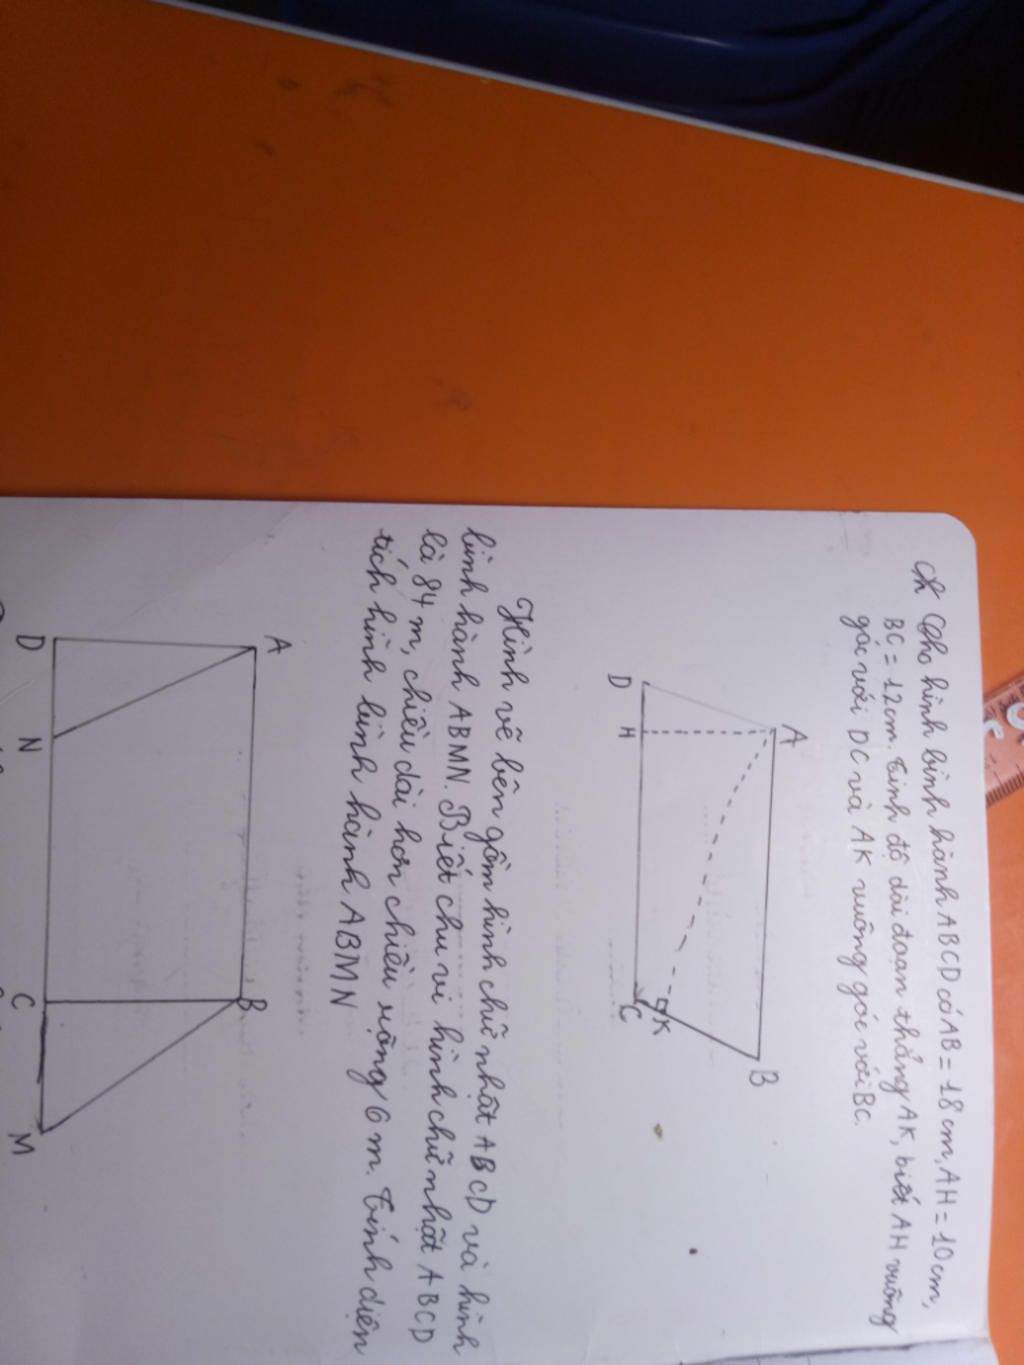 Cho hình bình hành ABCD có AB = 18cm, AH = 10cm,
BC = 12cm. Tính độ dài đoạn thẳng AK, biết AH vuông
góc với DC và AK vuông góc với BC.
A
B
D
H
C
K
Hình vẽ bên gồm hình chữ nhật ABCD và hình
bình hành ABMN. Biết chu vi hình chữ nhật ABCD
là 84 m, chiều dài hơn chiều rộng 6 m. Tính diện
tích hình bình hành ABMN
A
B
D
N
C
M